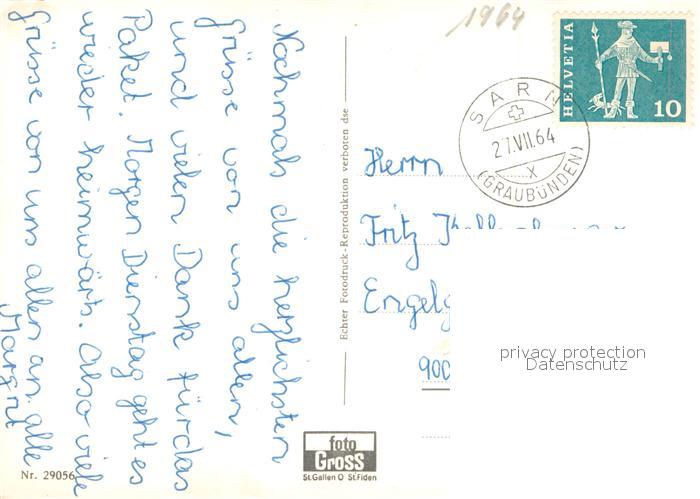 Nochmals die herzlichsten
Grüsse von uns allen,
und vielen Dank für das
Paket. Morgen Dienstag geht es
wieder heimwärts. Also viele
Grüsse von uns allen an alle
Margrit
Nr. 29056
Echter Fotodruck-Reproduktion verboten dse
foto
Gross
St.Gallen O St.Fiden
1964
HELVETIA
10
SARN
27.VII.64
X
(GRAUBÜNDEN)
Herrn
Fritz
900
privacy protection
Datenschutz